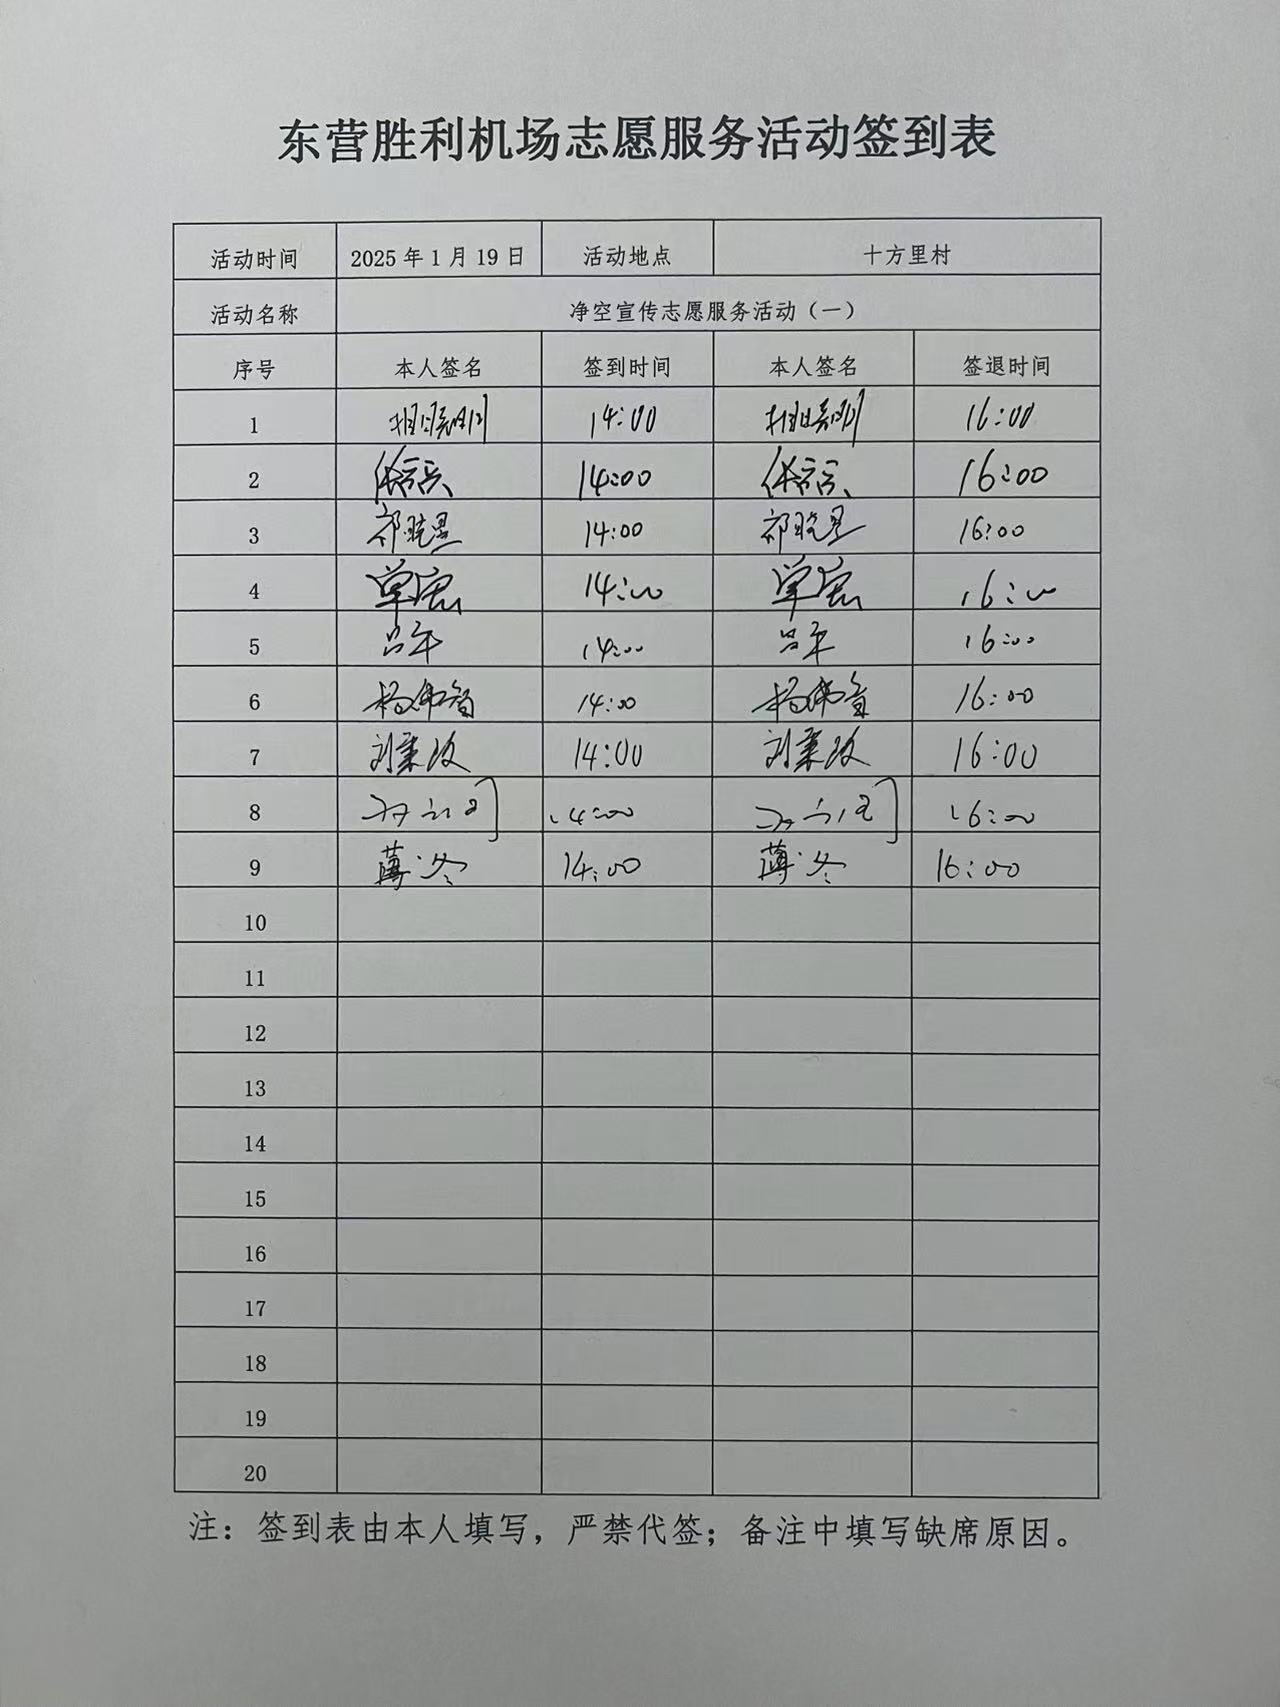 东营胜利机场志愿服务活动签到表
活动时间 2025年1月19日 活动地点 十方里村
活动名称 净空宣传志愿服务活动（一）
序号 本人签名 签到时间 本人签名 签退时间
1 14:00 16:00
2 14:00 16:00
3 祁晓星 14:00 祁晓星 16:00
4 单宏 14:00 单宏 16:00
5 吕军 14:00 吕军 16:00
6 杨伟智 14:00 杨伟智 16:00
7 刘秉政 14:00 刘秉政 16:00
8 14:00 16:00
9 薄冬 14:00 薄冬 16:00
10
11
12
13
14
15
16
17
18
19
20
注：签到表由本人填写，严禁代签；备注中填写缺席原因。